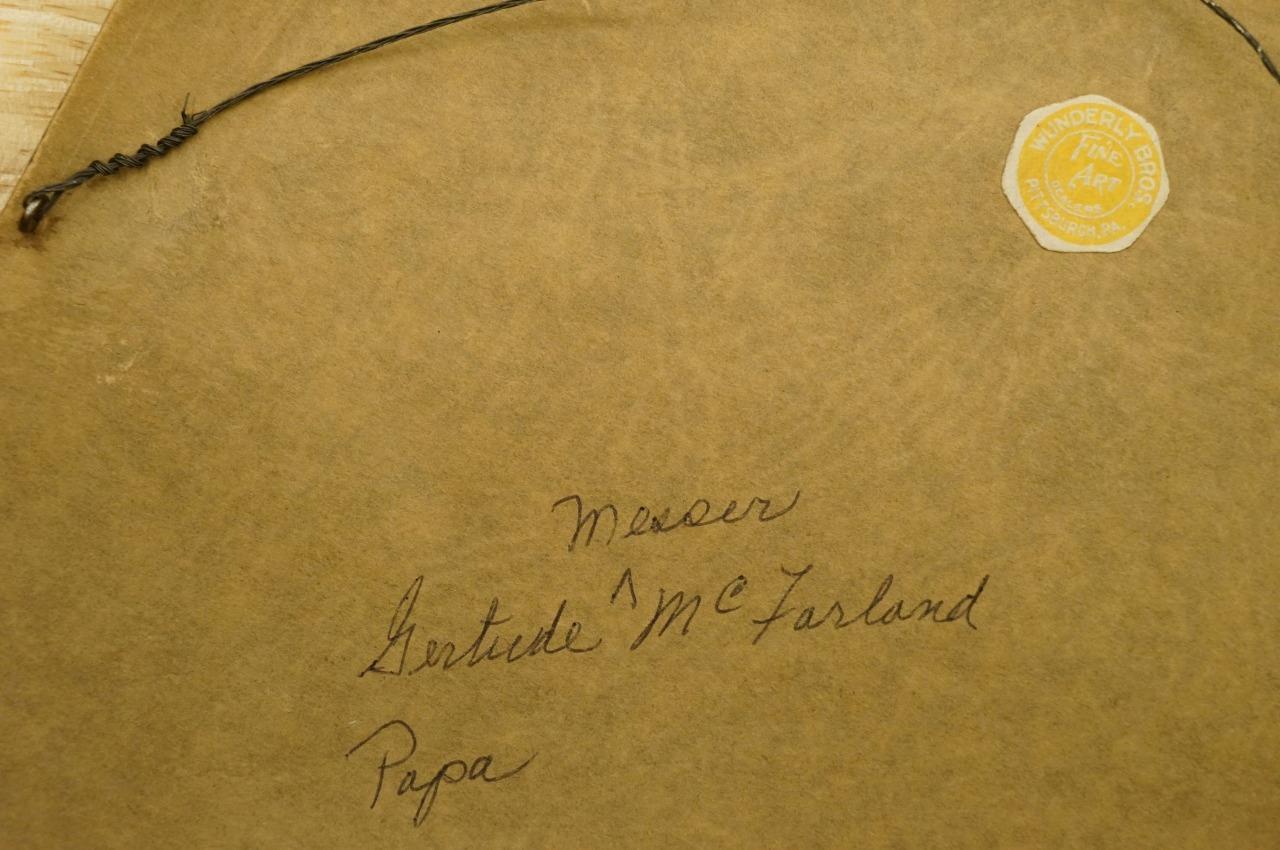 WUNDERLY BROS.
FINE
ART
DEALERS
PITTSBURGH, PA.
Messer
Gertude ^ Mc Farland
Papa